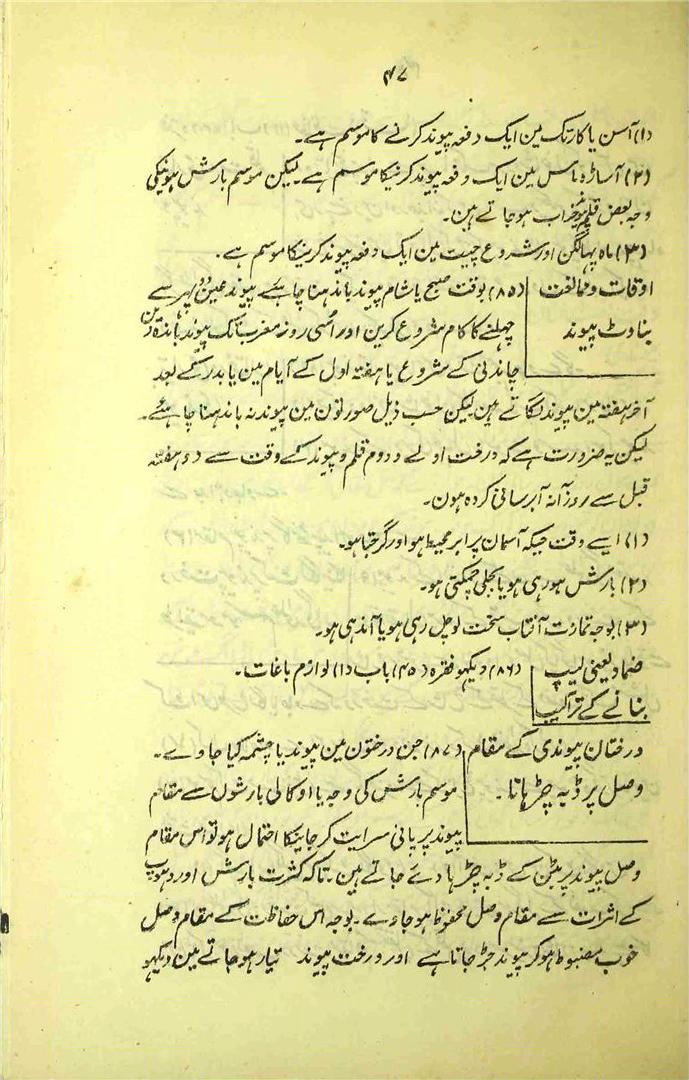 ۴۷
(۱) آسن یا کارتک مین ایک دفعہ پیوند کرنے کا موسم ہے۔
(۲) آساڑہ ماس مین ایک دفعہ پیوند کرنیکا موسم ہے۔ لیکن موسم بارش ہونیکی
وجہ بعض قلم خراب ہوجاتے ہین۔
(۳) ماہ پھالگن اور شروع چیت مین ایک دفعہ پیوند کرنیکا موسم ہے۔
اوقات وممالغت
بناوٹ پیوند
(۸۵) بوقت صبح یا شام پیوند باندہنا چاہئے پیوند عین دوپہر سے
پہلنے کا کام شروع کرین اور اُسی روز مغرب تک پیوند باندہ دین
چاندنی کے شروع یا ہفتہ اول کے آیام مین یا بدر کے بعد
آخر ہفتہ مین پیوند لگاتے ہین لیکن حسب ذیل صورتون مین پیوند نہ باندہنا چاہئے۔
لیکن یہ ضرورت ہے کہ درخت اولے و دوم قلم و پیوند کے وقت سے دو ہفتہ
قبل سے روزآنہ آبرسانی کردہ ہون۔
(۱) ایسے وقت جبکہ آسمان پر ابر محیط ہو اور گرجتا ہو۔
(۲) بارش ہورہی ہو یا بجلی چمکتی ہو۔
(۳) بوجہ تمازت آفتاب سخت لو چل رہی ہو یا آندہی ہو۔
ضماد یعنی لیپ
بنانے کے تراکیب
(۸۶) دیکھو فقرہ (۴۵) باب (۱) لوازم باغات۔
درختان پیوندی کے مقام
وصل پر ڈبہ چڑہانا۔
(۸۷) جن درختون مین پیوند یا چشمہ کیا جاوے۔
موسم بارش کی وجہ یا اوکالی بارشوں سے مقام
پیوند پر پانی سرایت کرجانیکا احتمال ہو تو اس مقام
وصل پیوند پر ٹین کے ڈبہ چڑہا دئے جاتے ہین۔ تاکہ کثرت بارش اور دہوپ
کے اثرات سے مقام وصل محفوظ ہوجاوے۔ بوجہ اس حفاظت کے مقام وصل
خوب مضبوط ہوکر پیوند جڑ جاتا ہے اور درخت پیوند تیار ہوجاتے ہین دیکھو